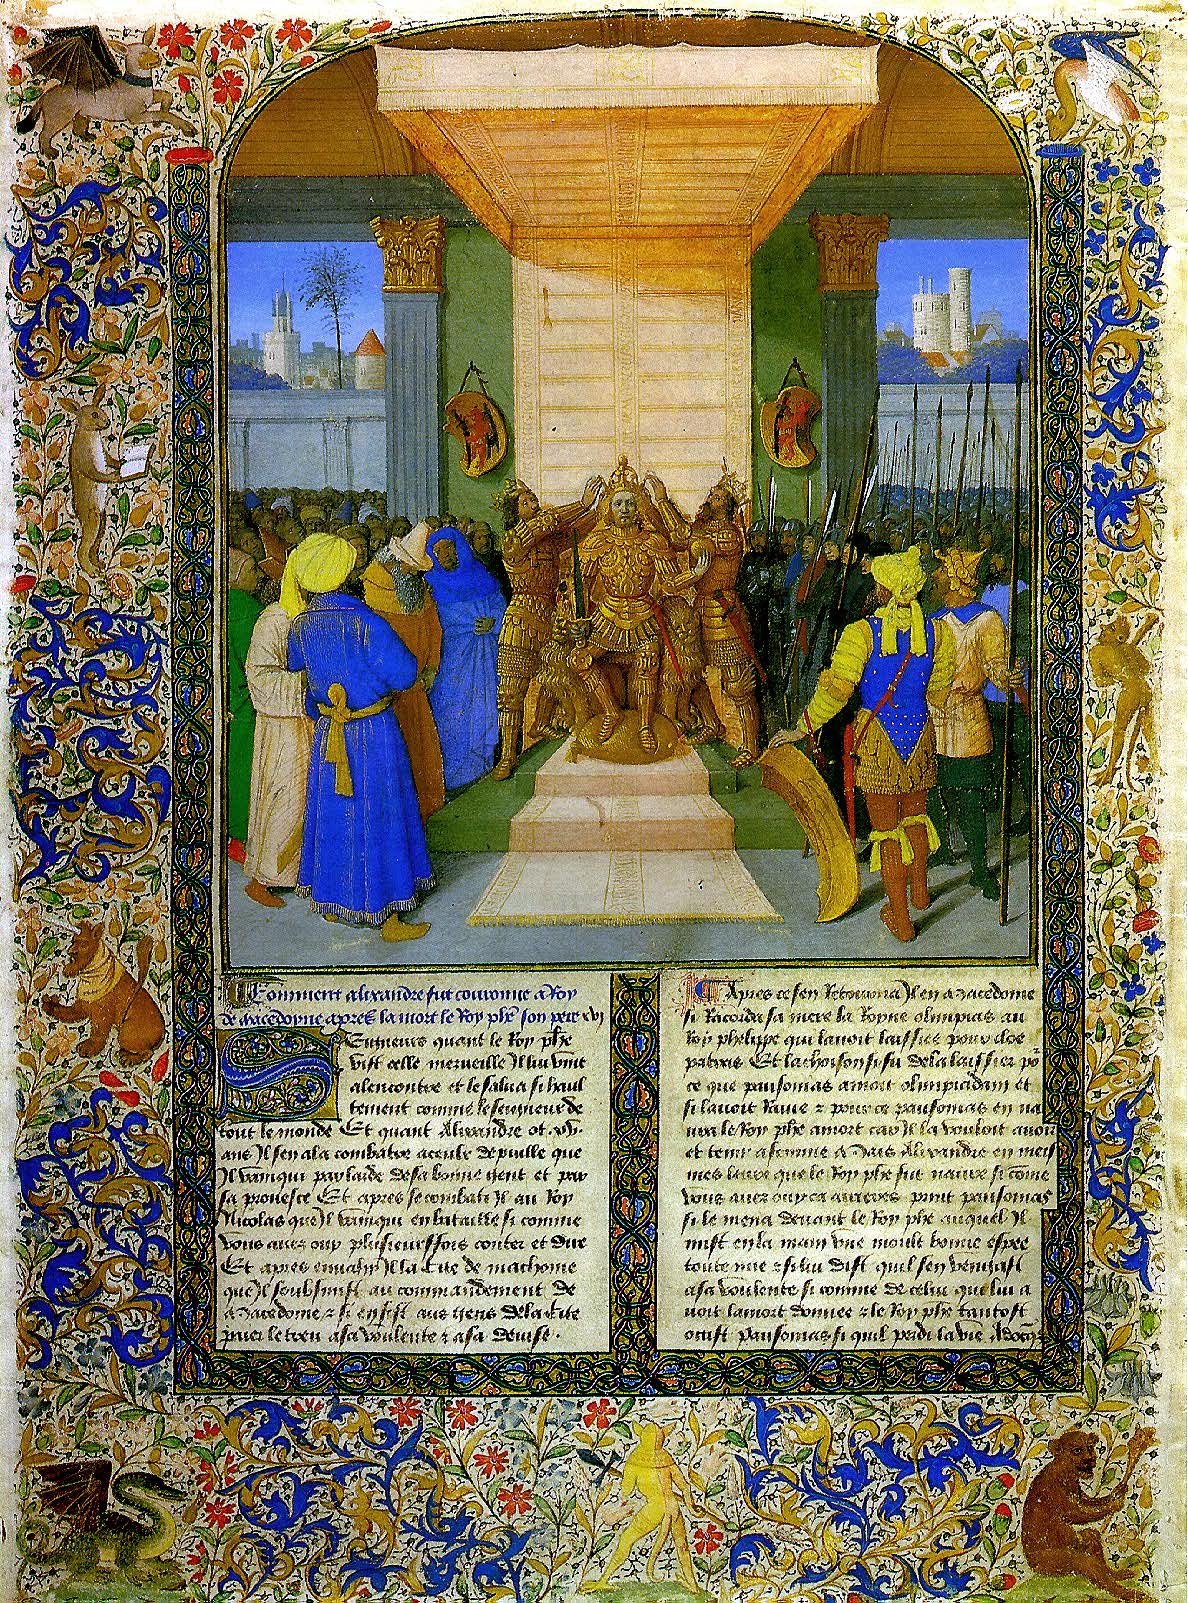 Comment alixandre fut couronne a Roy
de macedoyne apres la mort le Roy phe son pere xvj
Seigneurs quant le Roy phe
vist celle merveille Il lui vint
alencontre et le salua si haul
tement comme le seigneur de
tout le monde Et quant Alixandre ot .xv.
ans Il sen ala combatre de puille que
Il vainqui par laide de sa bonne gent et par
sa prouesse Et apres se combati Il au Roy
Nicolas que Il vainqui en bataille si comme
vous avez ouy plusieurs fois conter et dire
Et apres envahy Il la Cite de
que Il soubsmist au commandement de
macedome z si en fist aus gens de la Cite
paier le treu a sa voulente z a sa devise .
Apres ce sen Retourna Il en macedome
si Racorda sa mere la Royne olimpias au
Roy phelippe qui lavoit laissiee pour cleo
patras Et lachoison si fu de la laissier po
ce que pausonias amoit olimpiadam et
si lavoit z pour ce pausonias en na
vra le Roy phe a mort car Il la vouloit avoir
et tenir a femme Mais Alixandre en
mes que le Roy phe fut navre si come
vous avez ouy ca arrieres print pausonias
si le mena devant le Roy phe auquel Il
mist en la main une moult bonne espee
toute nue z si lui dist quil sen venjast
a sa voulente si comme de celui qui lui a
voit la mort donnee z le Roy phe tantost
occist pausonias si quil perdi la vie